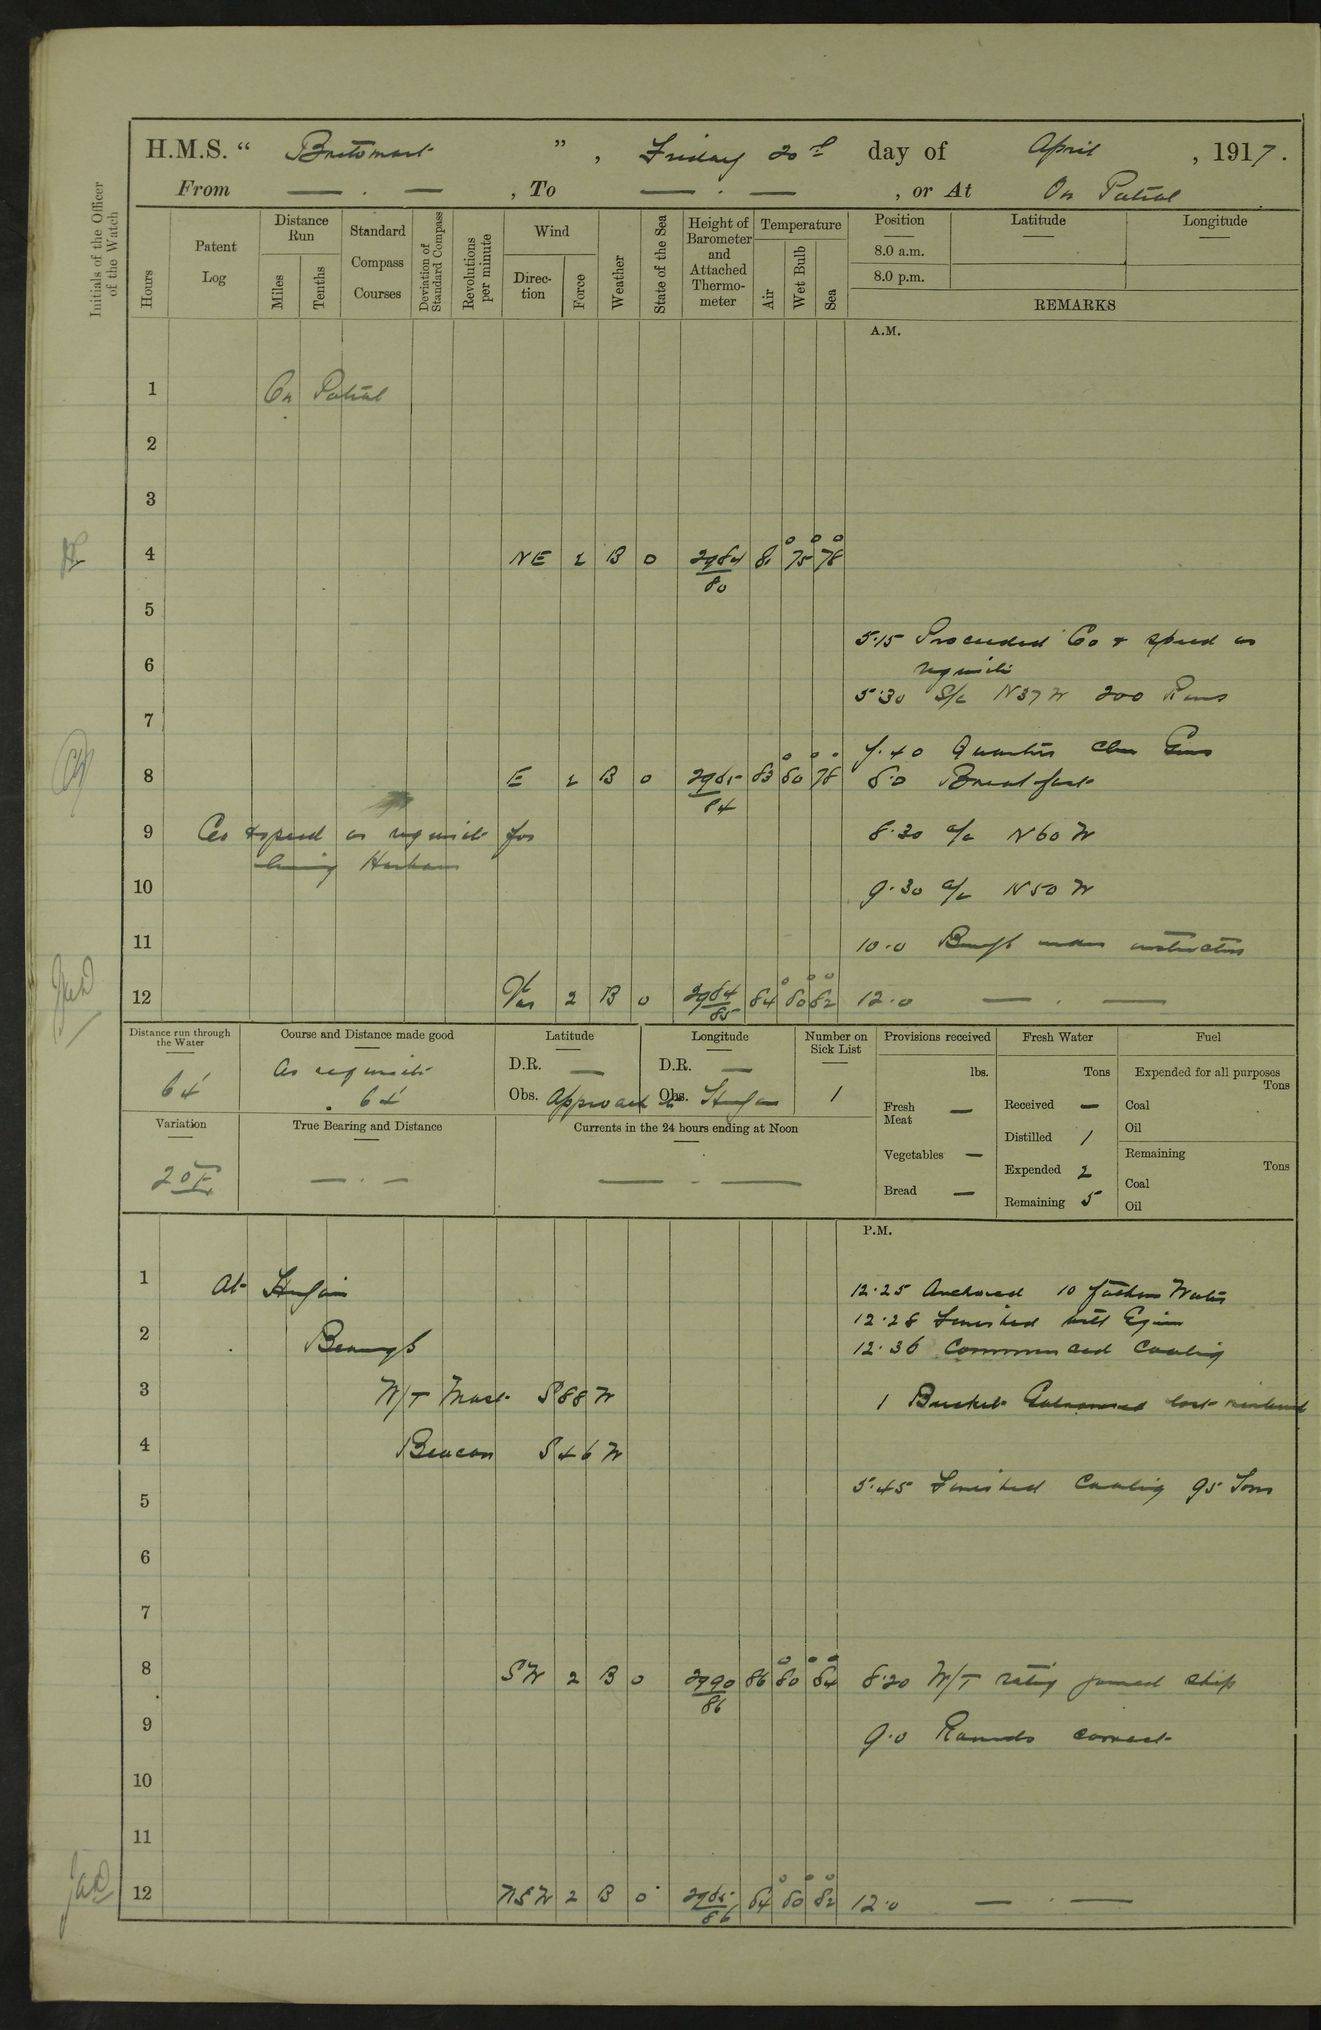 H.M.S. " Britomart " , Friday 20th day of April , 1917.
From — . — , To — . — , or At On Patrol
Initials of the Officer of the Watch
Hours
Patent Log
Distance Run
Miles
Tenths
Standard Compass Courses
Deviation of Standard Compass
Revolutions per minute
Wind
Direction
Force
Weather
State of the Sea
Height of Barometer and Attached Thermometer
Temperature
Air
Wet Bulb
Sea
Position
Latitude
Longitude
8.0 a.m.
8.0 p.m.
REMARKS
A.M.
1 On Patrol
2
3
4 NE 2 B 0 29.84 80 81 75° 78°
5
5.15 Proceeded Co & speed as
6 requisite
5.30 S/c N37W 200 Revs
7
7.40 Quarters clean Guns
8 E 2 B 0 29.85 84 83 80° 78° 8.0 Breakfast
9 Co & speed as requisite for 8.30 a/c N60W
Harbour
10 9.30 a/c N50W
11 10.0 under instruction
12 Var 2 B 0 29.84 85 84 80° 82° 12.0 — . —
Distance run through the Water
64
Course and Distance made good
As requisite
64
Latitude
D.R. —
Obs. Approach to
Longitude
D.R. —
Obs. Henjam
Number on Sick List
1
Provisions received
lbs.
Fresh Meat —
Vegetables —
Bread —
Fresh Water
Tons
Received —
Distilled 1
Expended 2
Remaining 5
Fuel
Expended for all purposes
Tons
Coal
Oil
Remaining
Tons
Coal
Oil
Variation
2°E
True Bearing and Distance
— . —
Currents in the 24 hours ending at Noon
— . —
P.M.
1 At Henjam 12.25 Anchored 10 fathoms Water
12.28 Finished with Engines
2 Bearings 12.36 Commenced Coaling
3 W/T Mast S88W 1 Bucket Galvanised lost
4 Beacon S46W
5.45 Finished Coaling 95 Tons
5
6
7
8 SW 2 B 0 29.90 86 86 80° 84° 8.20 W/T rating joined ship
9 9.0 Rounds correct
10
11
12 WSW 2 B 0 29.85 86 84 80° 82° 12.0 — . —